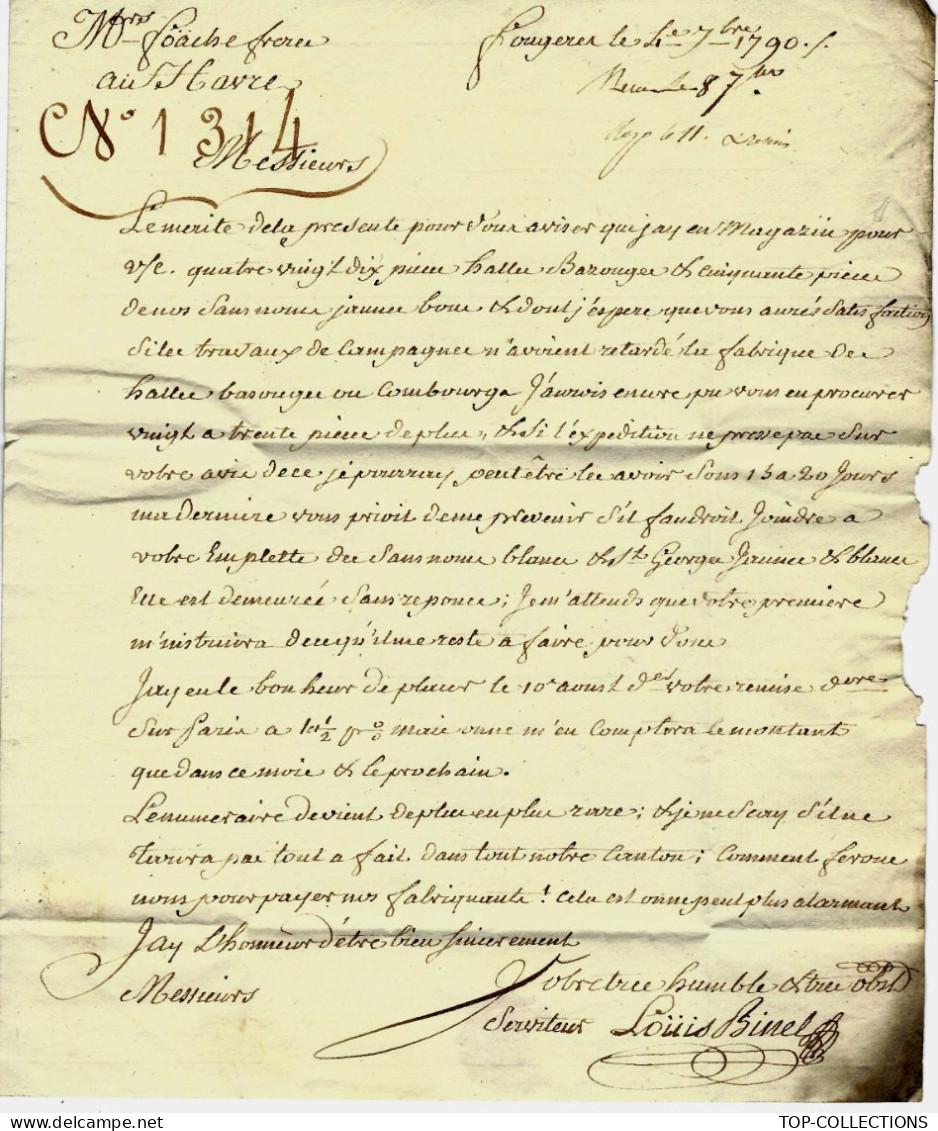 Mrs foäche freres
au Havre
Fougeres le 4e 7bre 1790./.
Recu le 8 7bre
Rep le 11.
No 1314
Messieurs
Le merite de la presente pour vous aviser que jay en Magazin pour
v/c. quatre vingt dix pieces halles Bazouges & Cinquante pieces
de nos Sans noms jaunes bons & dont j'espere que vous aurés Satisfaction
Si les travaux de Campagnes n'avoient retardé la fabrique des
halles basouges ou Combourgs J'aurois encore pu vous en procurer
vingt a trente pieces de plus, & Si l'expedition ne presse pas Sur
votre avis de ce je pourray peut être les avoir Sous 15 a 20 Jours
ma derniere vous prioit de me prevenir S'il faudroit Joindre a
votre Emplette des Sans noms blancs & St. Georges Jaunes & blancs
Elle est demeurée Sans reponce; Je m'attends que votre premiere
m'instruira de ce qu'il me reste a faire pour vous
Jay eu le bonheur de placer le 10 aoust des votre remise dre
Sur Paris a 1 1/2 pr % mais on ne m'en Comptera le montant
que dans ce mois & le prochain.
Le numeraire devient de plus en plus rare; & je ne Scay S'il ne
Tarira pas tout a fait dans tout notre Canton; Comment ferons
nous pour payer nos fabriquants! Cela est on ne peut plus alarmant
Jay L'honneur d'être bien Sincerement
Messieurs
Votre tres humble & tres obst
Serviteur Loüis Binel
TOP-COLLECTIONS